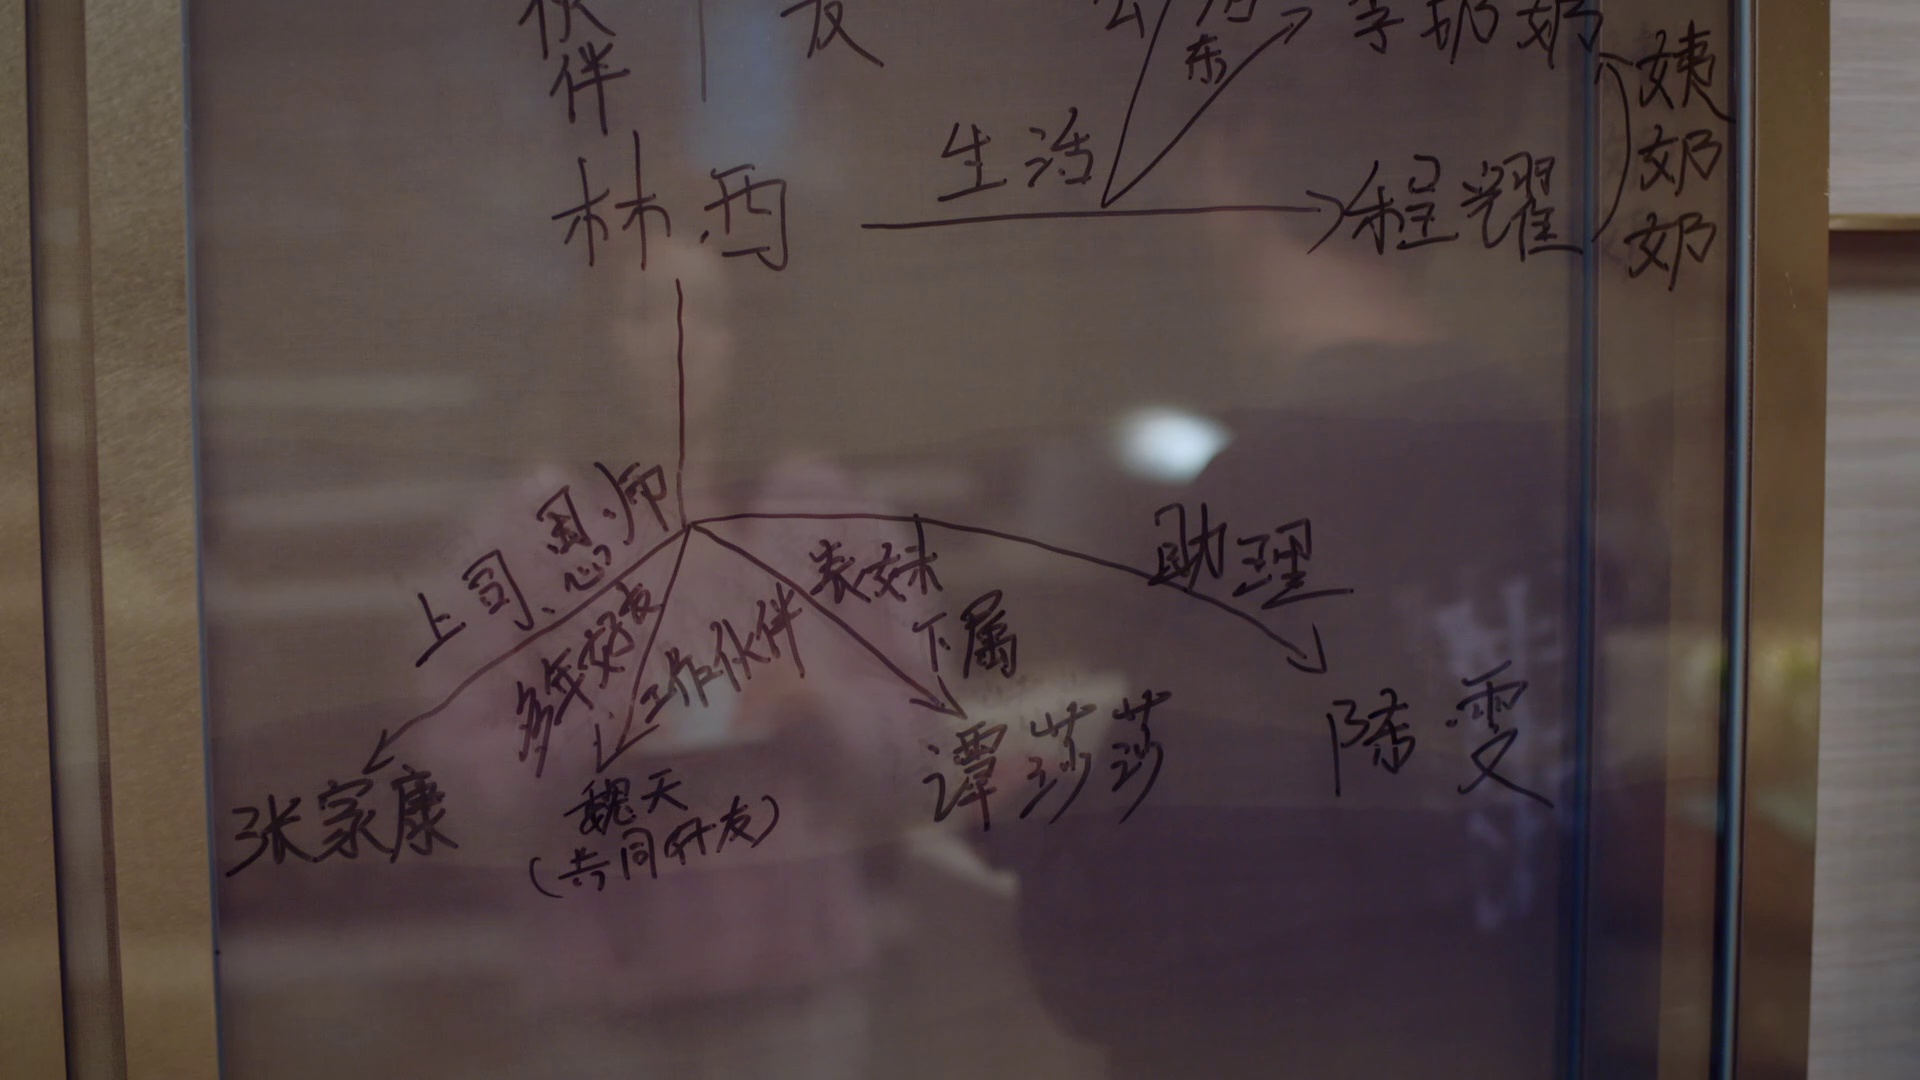 伙伴
友
房东
李奶奶
姨奶奶
生活
林西
程耀
上司、恩师
多年好友
工作伙伴
表妹
下属
助理
张家康
魏天
(共同研发)
谭莎莎
陈雯